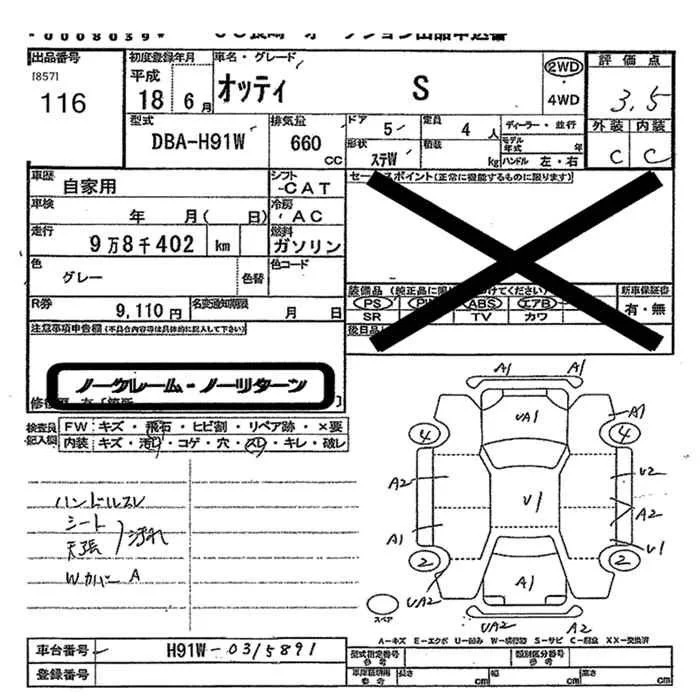 *0008039*
出品番号
[857]
116
初度登録年月
平成
18 6月
車名・グレード
オッティ S
2WD
・
4WD
評価点
3.5
外装 内装
C C
型式
DBA-H91W
排気量
660
CC
ドア
5
定員
4人
ディーラー・並行
形状
ステW
積載
kg
モデル年式 年
ハンドル 左・右
車歴
自家用
シフト
CAT
車検
年 月( 日)
冷房
AC
走行
9万8千402 km
燃料
ガソリン
色
グレー
色替
色コード
R券
9,110円
名変通知期限
月 日
セールスポイント(正常に機能するものに限ります)
ABS エアB
SR TV カワ
新車保証書
有・無
後日品
注意事項申告欄(不具合内容等は具体的に記入して下さい)
ノークレーム・ノーリターン
検査員
記入欄
FW: キズ・飛石・ヒビ割・リペア跡・×要
内装: キズ・汚レ・コゲ・穴・スレ・キレ・破レ
ハンドルスレ
シート
天張
汚れ
Wカバー A
A1 A1
UA1
A1
4 4
A2
U2
U1
A2
A1
U1
2 2
A1
UA2
スペア
UA2 A2
A-キズ E-エクボ U-凹み W-補修跡 S-サビ C-腐食 XX-交換済
車台番号
H91W-0315891
登録番号
型式指定番号
参考
類別区分番号
参考
長さ cm
幅 cm
高さ cm